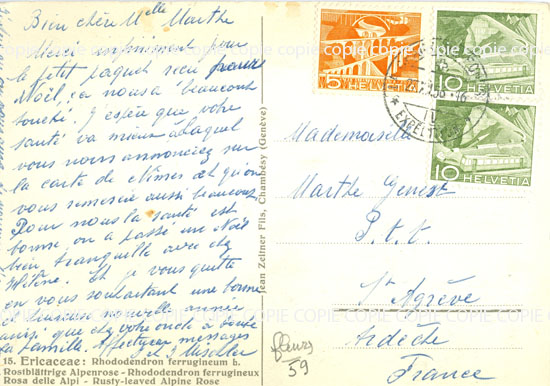 Bien chère Melle Marthe
Merci infiniment pour
le petit paquet reçu pour
Noël, ça nous a beaucoup
touché. J'espère que votre
santé va mieux
vous nous annonciez sur
la carte de Nîmes et qu'on
vous remercie aussi beaucoup
Pour nous la santé est
bonne, on a passé une Noël
bien tranquille avec chez
Hélène. Et je vous quitte
en vous souhaitant une bonne
et heureuse nouvelle année
ainsi que chez votre oncle & toute
la famille. Affectueux messages
15. Ericaceae: Rhododendron ferrugineum L.
Rostblättrige Alpenrose - Rhododendron ferrugineux
Rosa delle Alpi - Rusty-leaved Alpine Rose
Jean Zeltner Fils, Chambésy (Genève)
5 HELVETIA
10 HELVETIA
10 HELVETIA
Mademoiselle
Marthe Genest
P. t. t.
St Agrève
Ardèche
France
fleurs
59
COPIE COPIE COPIE COPIE COPIE COPIE